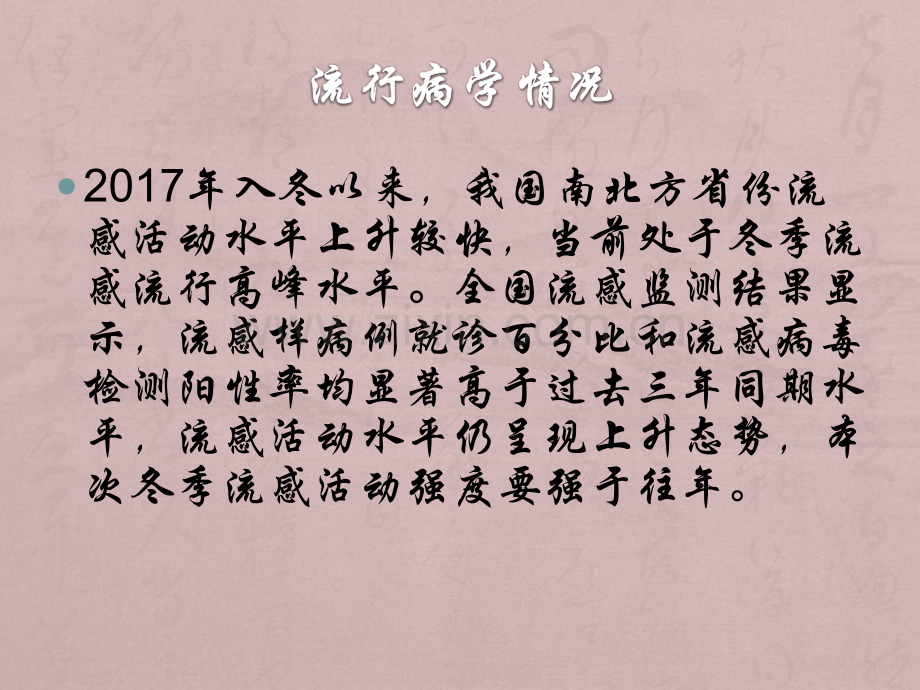 流行病学情况
2017年入冬以来，我国南北方省份流
感活动水平上升较快，当前处于冬季流
感流行高峰水平。全国流感监测结果显
示，流感样病例就诊百分比和流感病毒
检测阳性率均显著高于过去三年同期水
平，流感活动水平仍呈现上升态势，本
次冬季流感活动强度要强于往年。
www.zixin.com.cn